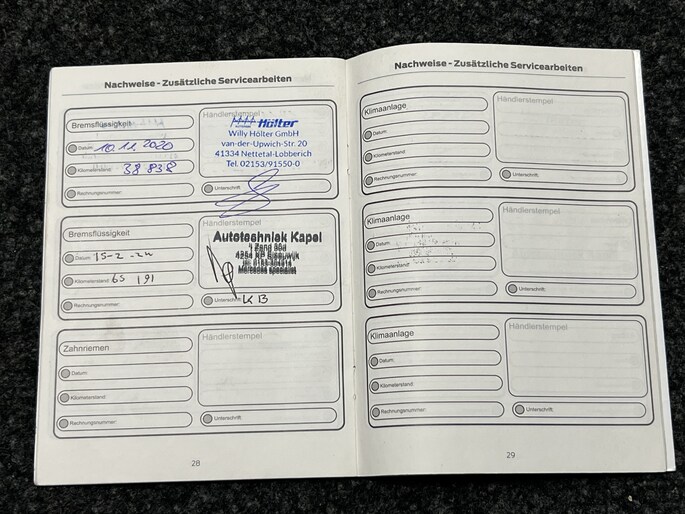 Nachweise - Zusätzliche Servicearbeiten
Bremsflüssigkeit
Datum: 10.11.2020
Kilometerstand: 38 838
Rechnungsnummer:
Händlerstempel
Hölter
Willy Hölter GmbH
van-der-Upwich-Str. 20
41334 Nettetal-Lobberich
Tel. 02153/91550-0
Unterschrift:
Bremsflüssigkeit
Datum: 15-2-24
Kilometerstand: 65 191
Rechnungsnummer:
Händlerstempel
Autotechniek Kapel
Mercedes specialist
Unterschrift: KB
Zahnriemen
Datum:
Kilometerstand:
Rechnungsnummer:
Händlerstempel
Unterschrift:
28
Nachweise - Zusätzliche Servicearbeiten
Klimaanlage
Datum:
Kilometerstand:
Rechnungsnummer:
Händlerstempel
Unterschrift:
Klimaanlage
Datum:
Kilometerstand:
Rechnungsnummer:
Händlerstempel
Unterschrift:
Klimaanlage
Datum:
Kilometerstand:
Rechnungsnummer:
Händlerstempel
Unterschrift:
29